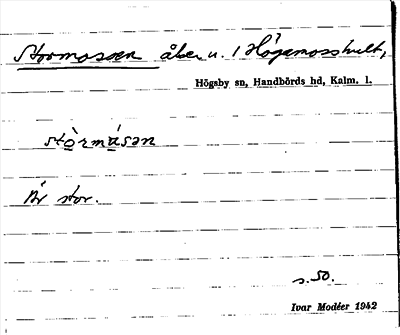 Stormossen åker u. 1 Högamosshult,
Högsby sn, Handbörds hd, Kalm. l.
stòrmásən
Är stor.
s. 50.
Ivar Modéer 1942